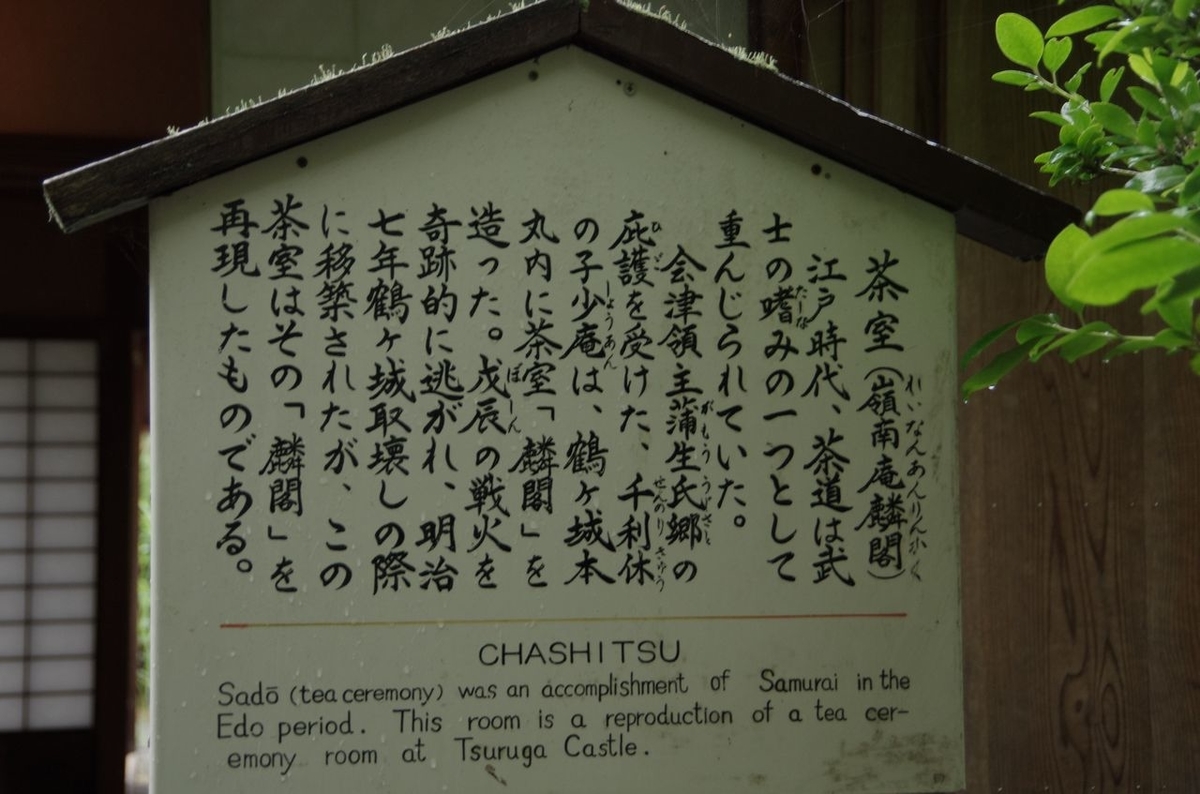 茶室(嶺南庵麟閣)
れいなんあんりんかく
江戸時代、茶道は武
士の嗜みの一つとして
たしな
重んじられていた。
会津領主蒲生氏郷の
がもううじさと
庇護を受けた、千利休
ひご
せんのりきゅう
の子少庵は、鶴ヶ城本
しょうあん
丸内に茶室「麟閣」を
造った。戊辰の戦火を
ぼしん
奇跡的に逃がれ、明治
七年鶴ヶ城取壊しの際
に移築されたが、この
茶室はその「麟閣」を
再現したものである。
CHASHITSU
Sadō (tea ceremony) was an accomplishment of Samurai in the
Edo period. This room is a reproduction of a tea cer-
emony room at Tsuruga Castle.